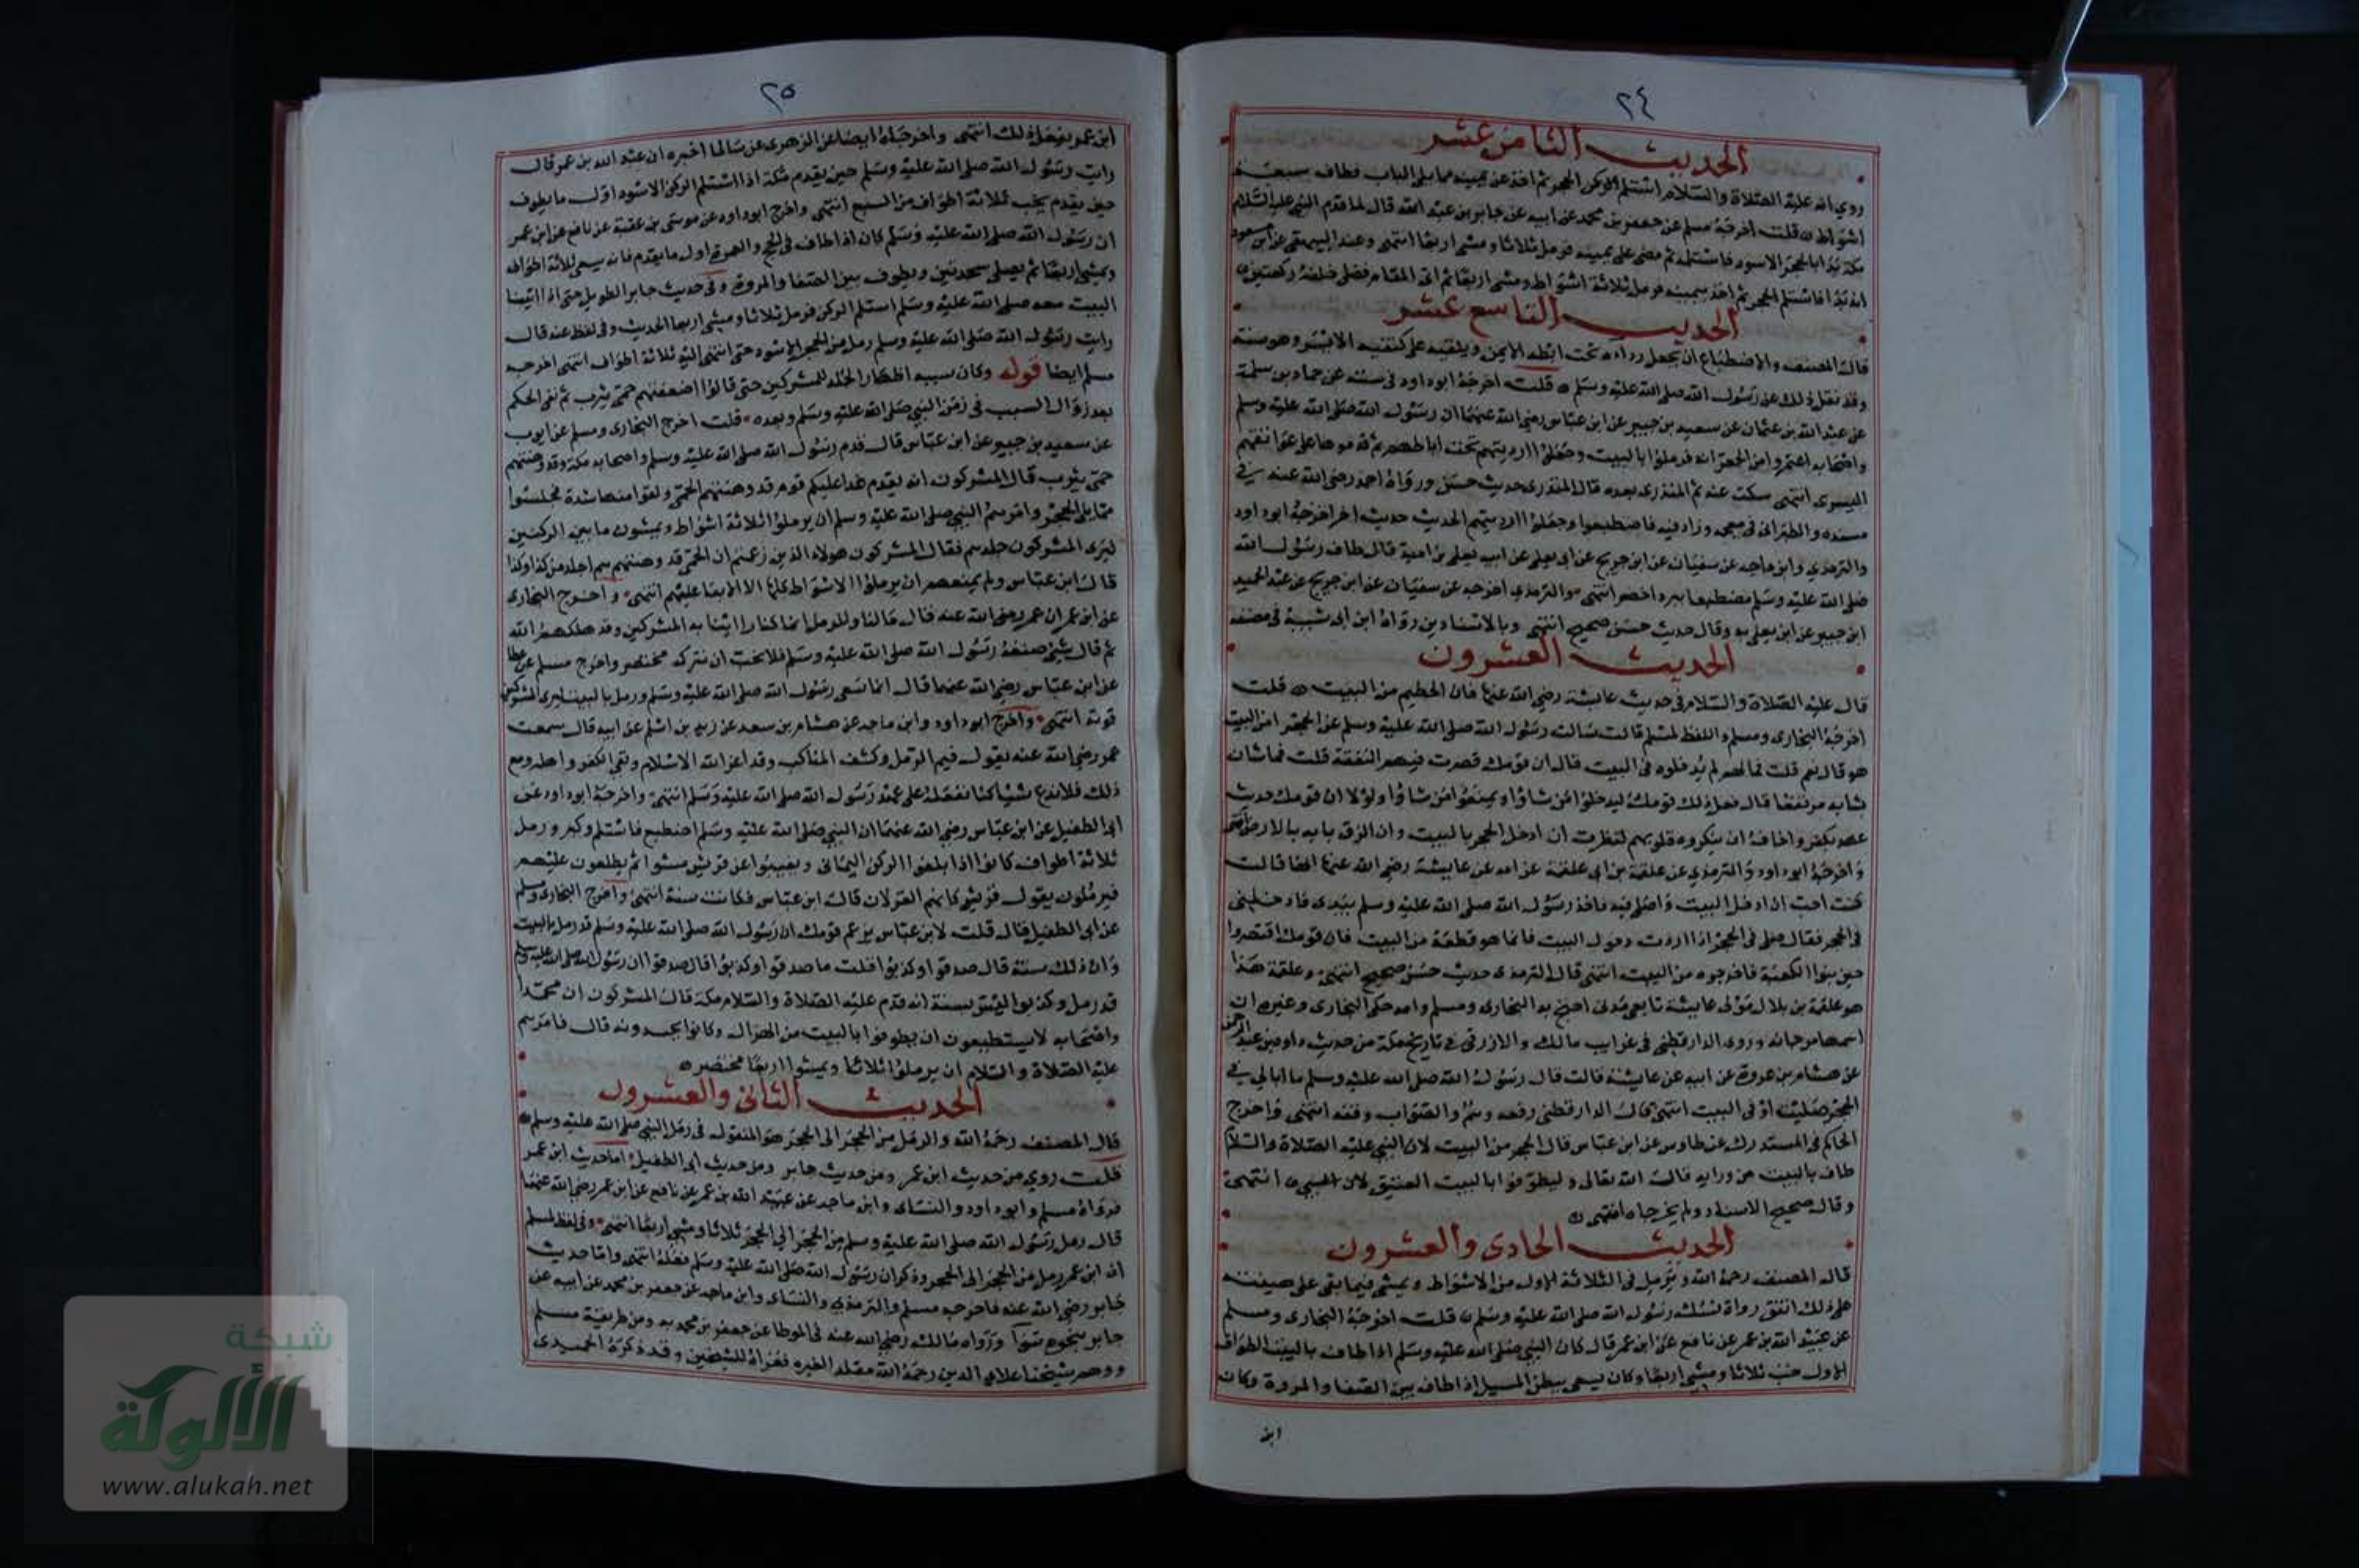 ٢٤
الحديث الثامن عشر
روي انه عليه الصلاة والسلام استلم الركن الحجر ثم اخذ عن يمينه مما يلي الباب فطاف سبعة
اشواط ه قلت اخرجه مسلم عن جعفر بن محمد عن ابيه عن جابر بن عبد الله قال لما قدم النبي عليه السلام
مكة بدا بالحجر الاسود فاستلمه ثم مضى على يمينه فرمل ثلاثا ومشى اربعا انتهى وعند البيهقي عن ابن مسعود
انه بدا فاستلم الحجر ثم اخذ يمينه فرمل ثلاثة اشواط ومشى اربعا ثم اتى المقام فصلى خلفه ركعتين ه
الحديث التاسع عشر
قال المصنف والاضطباع ان يجعل رداءه تحت ابطه الايمن ويلقيه على كتفيه الايسر وهو سنة
وقد نقل ذلك عن رسول الله صلى الله عليه وسلم ه قلت اخرجه ابو داود في سننه عن حماد بن سلمة
عن عبد الله بن عثمان عن سعيد بن جبير عن ابن عباس رضي الله عنهما ان رسول الله صلى الله عليه وسلم
واصحابه اعتمروا من الجعرانه فرملوا بالبيت وجعلوا ارديتهم تحت اباطهم ثم قذفوها على عواتقهم
اليسرى انتهى سكت عنه ثم المنذري بعده قال المنذري حديث حسن ورواه احمد رضي الله عنه في
مسنده والطبراني في معجمه وزاد فيه فاضطبعوا وجعلوا ارديتهم الحديث حديث اخر اخرجه ابو داود
والترمذي وابن ماجه عن سفيان عن ابن جريج عن ابي يعلى عن ابيه يعلى بن امية قال طاف رسول الله
صلى الله عليه وسلم مضطبعا ببرد اخضر انتهى والترمذي اخرجه عن سفيان عن ابن جريج عن عبد الحميد
ابن جبير عن ابن يعلى به وقال حديث حسن صحيح انتهى وبالاسنادين رواه ابن ابي شيبة في مصنفه
الحديث العشرون
قال عليه الصلاة والسلام في حديث عايشة رضي الله عنها فان الحطيم من البيت ه قلت
اخرجه البخاري ومسلم واللفظ لمسلم قالت سالت رسول الله صلى الله عليه وسلم عن الحجر امن البيت
هو قال نعم قلت فما لهم لم يدخلوه في البيت قال ان قومك قصرت فيهم النفقة قلت فما شان
بابه مرتفعا قال فعل ذلك قومك ليدخلوا من شاؤا ويمنعوا من شاؤا ولولا ان قومك حديث
عهد بكفر واخاف ان ينكروه قلوبهم لنظرت ان ادخل الحجر بالبيت وان الزق بابه بالارض انتهى
واخرجه ابو داود والترمذي عن علقمة بن ابي علقمة عن امه عن عايشة رضي الله عنها انها قالت
كنت احب ان ادخل البيت واصلي فيه فاخذ رسول الله صلى الله عليه وسلم بيدي فادخلني
في الحجر فقال صلي في الحجر اذا اردت دخول البيت فانما هو قطعة من البيت فان قومك اقتصروا
حين بنوا الكعبة فاخرجوه من البيت انتهى قال الترمذي حديث حسن صحيح انتهى وعلقمة هذا
هو علقمة بن بلال مولى عايشة تابعي مدني احتج به البخاري ومسلم وامه حكى البخاري وغيره ان
اسمها مرجانه وروى الدارقطني في غرايب مالك والازرقي في تاريخ مكة من حديث داود بن عبد الرحمن
عن هشام بن عروة عن ابيه عن عايشة قالت قال رسول الله صلى الله عليه وسلم ما ابالي في
الحجر صليت او في البيت انتهى قال الدارقطني رفعه وهم والصواب وقفه انتهى واخرج
الحاكم في المستدرك عن طاوس عن ابن عباس قال الحجر من البيت لان النبي عليه الصلاة والسلام
طاف بالبيت من ورايه قال الله تعالى وليطوفوا بالبيت العتيق انتهى
وقال صحيح الاسناد ولم يخرجاه انتهى ه
الحديث الحادي والعشرون
قال المصنف رحمه الله ويرمل في الثلاثة الاول من الاشواط ويمشي فيما بقي على هينته
على ذلك اتفق رواة نسك رسول الله صلى الله عليه وسلم ه قلت اخرجه البخاري ومسلم
عن عبيد الله بن عمر عن نافع عن ابن عمر قال كان النبي صلى الله عليه وسلم اذا طاف بالبيت الطواف
الاول خب ثلاثا ومشى اربعا وكان يسعى ببطن المسيل اذا طاف بين الصفا والمروة وكان
ابن
٢٥
ابن عمر يفعل ذلك انتهى واخرجاه ايضا عن الزهري عن سالما اخبره ان عبد الله بن عمر قال
رايت رسول الله صلى الله عليه وسلم حين يقدم مكة اذا استلم الركن الاسود اول ما يطوف
حين يقدم يخب ثلاثة اطواف من السبع انتهى واخرج ابو داود عن موسى بن عقبة عن نافع عن ابن عمر
ان رسول الله صلى الله عليه وسلم كان اذا طاف في الحج والعمرة اول ما يقدم فانه يسعى ثلاثة اطواف
ويمشي اربعا ثم يصلي سجدتين ويطوف بين الصفا والمروة وفي حديث جابر الطويل حتى اذا اتينا
البيت معه صلى الله عليه وسلم استلم الركن فرمل ثلاثا ومشى اربعا الحديث وفي لفظ عنه قال
رايت رسول الله صلى الله عليه وسلم رمل من الحجر الاسود حتى انتهى اليه ثلاثة اطواف انتهى اخرجه
مسلم ايضا قوله وكان سببه اظهار الجلد للمشركين حتى قالوا اضعفتهم حمى يثرب ثم نفى الحكم
بعد زوال السبب في زمن النبي صلى الله عليه وسلم وبعده قلت اخرج البخاري ومسلم عن ايوب
عن سعيد بن جبير عن ابن عباس قال قدم رسول الله صلى الله عليه وسلم واصحابه مكة وقد وهنتهم
حمى يثرب قال المشركون انه يقدم غدا عليكم قوم قد وهنتهم الحمى ولقوا منها شدة فجلسوا
مما يلي الحجر وامرهم النبي صلى الله عليه وسلم ان يرملوا ثلاثة اشواط ويمشون ما بين الركنين
ليرى المشركون جلدهم فقال المشركون هولاء الذين زعمتم ان الحمى قد وهنتهم هم اجلد من كذا وكذا
قال ابن عباس ولم يمنعهم ان يرملوا الاشواط كلها الا الابقا عليهم انتهى واخرج البخاري
عن ابن عمر ان عمر رضي الله عنه قال مالنا وللرمل انما كنا راأينا به المشركين وقد هلكهم الله
ثم قال شيئ صنعه رسول الله صلى الله عليه وسلم فلا نحب ان نتركه مختصر واخرج مسلم عن عطا
عن ابن عباس رضي الله عنهما قال انما سعى رسول الله صلى الله عليه وسلم ورمل بالبيت ليرى المشركين
قوته انتهى واخرج ابو داود وابن ماجه عن هشام بن سعد عن زيد بن اسلم عن ابيه قال سمعت
عمر رضي الله عنه يقول فيم الرمل وكشف المناكب وقد اعز الله الاسلام ونفى الكفر واهله ومع
ذلك فلا ندع شيا كنا نفعله على عهد رسول الله صلى الله عليه وسلم انتهى واخرجه ابو داود عن
ابي الطفيل عن ابن عباس رضي الله عنهما ان النبي صلى الله عليه وسلم اضطبع فاستلم وكبر ورمل
ثلاثة اطواف كانوا اذا بلغوا الركن اليماني وتغيبوا عن قريش مشوا ثم يطلعون عليهم
فيرملون يقول قريش كانهم الغزلان قال ابن عباس فكانت سنة انتهى واخرج البخاري ومسلم
عن ابي الطفيل قال قلت لابن عباس يزعم قومك ان رسول الله صلى الله عليه وسلم قد رمل بالبيت
وان ذلك سنة قال صدقوا وكذبوا قلت ما صدقوا وكذبوا قال صدقوا ان رسول الله صلى الله عليه وسلم
قد رمل وكذبوا ليس بسنة انه قدم عليه الصلاة والسلام مكة قال المشركون ان محمدا
واصحابه لا يستطيعون ان يطوفوا بالبيت من الهزال وكانوا يحسدونه قال فامرهم
عليه الصلاة والسلام ان يرملوا ثلاثا ويمشوا اربعا مختصر ه
الحديث الثاني والعشرون
قال المصنف رحمه الله والرمل من الحجر الى الحجر هو المنقول في رمل النبي صلى الله عليه وسلم ه
قلت روي من حديث ابن عمر ومن حديث جابر ومن حديث ابي الطفيل اما حديث ابن عمر
فرواه مسلم وابو داود والنساى وابن ماجه عن عبيد الله بن عمر عن نافع عن ابن عمر رضي الله عنهما
قال رمل رسول الله صلى الله عليه وسلم من الحجر الى الحجر ثلاثا ومشى اربعا انتهى وفي لفظ لمسلم
ان ابن عمر رمل من الحجر الى الحجر وذكر ان رسول الله صلى الله عليه وسلم فعله انتهى واما حديث
جابر رضي الله عنه فاخرجه مسلم والترمذي والنساى وابن ماجه عن جعفر بن محمد عن ابيه عن
جابر بنحوه سوآ ورواه مالك رضي الله عنه في الموطا عن جعفر بن محمد به ومن طريقة مسلم
ووهم شيخنا علاء الدين رحمه الله مقلد الغيره فعزاه للشيخين وقد ذكره الحميدي
شبكة
الألوكة
www.alukah.net